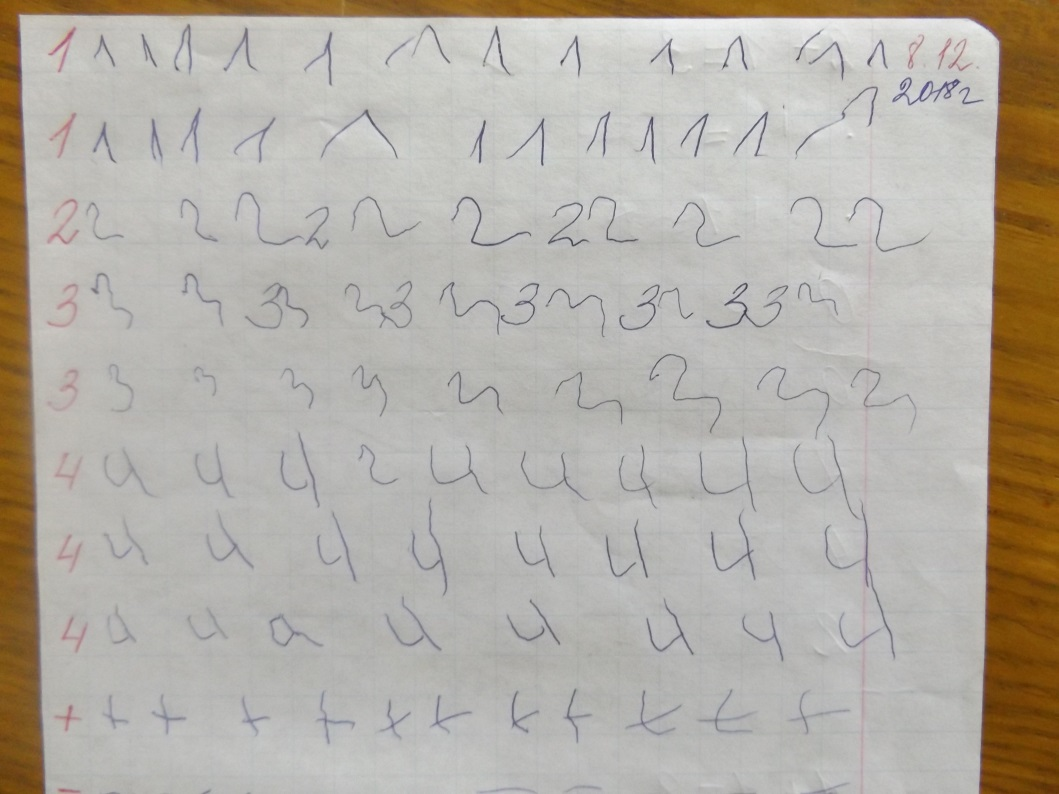 1 1 1 1 1 1 1 1 1 1 1 1 1 8.12.
2018г
1 1 1 1 1 1 1 1 1 1 1 1 1
2 2 2 2 2 2 2 2 2 2 2 2
3 3 3 3 3 3 3 3 3 3 3 2 3 3 3
3 3 3 3 3 3 3 3 3 3
4 4 4 4 2 4 4 4 4 4
4 4 4 4 4 4 4 4 4
4 4 4 4 4 4 4 4
+ + + + + + + + + + + +